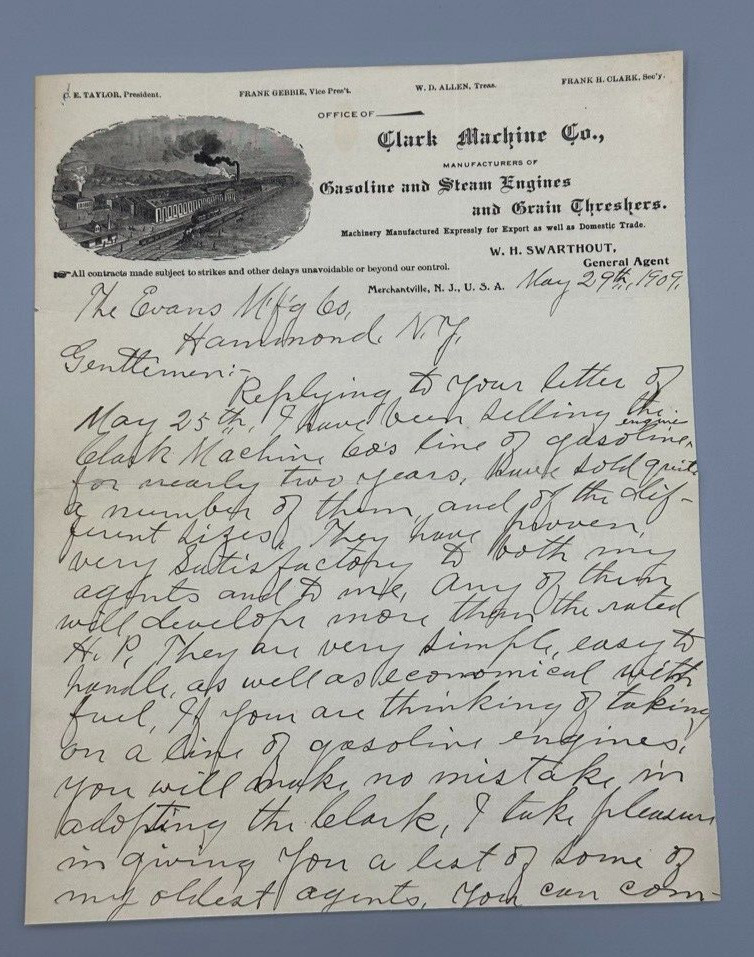 C. E. TAYLOR, President. FRANK GEBBIE, Vice Pres't. W. D. ALLEN, Treas. FRANK H. CLARK, Sec'y.
OFFICE OF
Clark Machine Co.,
MANUFACTURERS OF
Gasoline and Steam Engines
and Grain Threshers.
Machinery Manufactured Expressly for Export as well as Domestic Trade.
W. H. SWARTHOUT,
General Agent
All contracts made subject to strikes and other delays unavoidable or beyond our control.
Merchantville, N. J., U. S. A. May 29th, 1909.
The Evans M'f'g Co,
Hammond, N. Y.
Gentlemen:-
Replying to your letter of
May 25th, I have been selling the
Clark Machine Co's line of gasoline engine
for nearly two years, have sold quite
a number of them, and of the dif-
ferent sizes. They have proven
very satisfactory to both my
agents and to me, any of them
will develope more than the rated
H. P. They are very simple, easy to
handle, as well as economical with
fuel, If you are thinking of taking
on a line of gasoline engines,
you will make no mistake in
adopting the Clark, I take pleasure
in giving you a list of some of
my oldest agents, you can com-